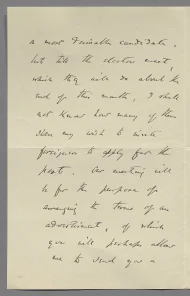 a most desirable candidate,
but till the electors meet,
which they will do about the
end of this month, I shall
not know how many of them
share my wish to invite
foreigners to apply for the
post. Our meeting will
be for the purpose of
arranging the terms of an
advertisement, of which
you will perhaps allow
me to send you a